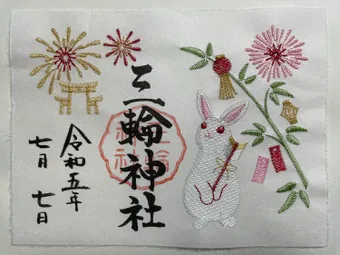 三輪神社
令和五年
七月 七日